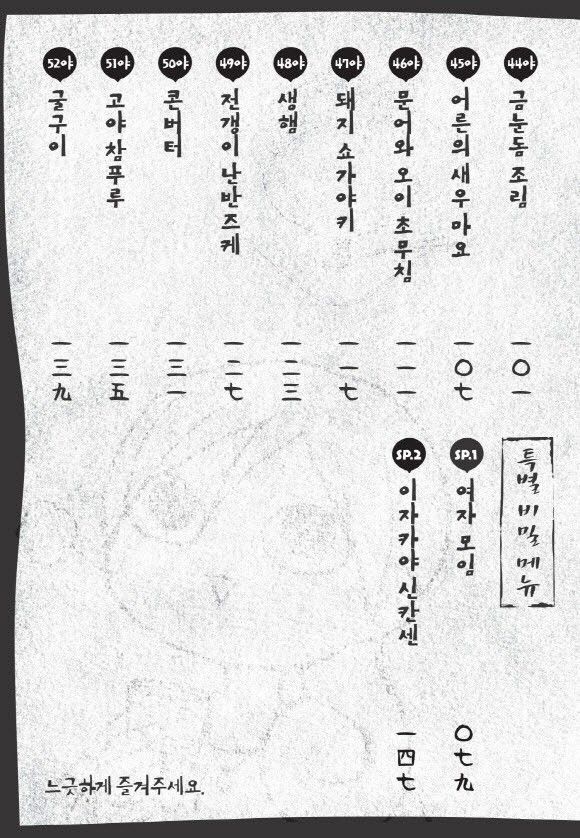 44야 금눈돔 조림 一〇一
45야 어른의 새우마요 一〇七
46야 문어와 오이 초무침 一一一
47야 돼지 쇼가야키 一一七
48야 생햄 一二三
49야 전갱이 난반즈케 一二七
50야 콘버터 一三一
51야 고야 참푸루 一三五
52야 굴구이 一三九
특별 비밀 메뉴
SP.1 여자 모임 〇七九
SP.2 이자카야 신칸센 一四七
느긋하게 즐겨주세요.